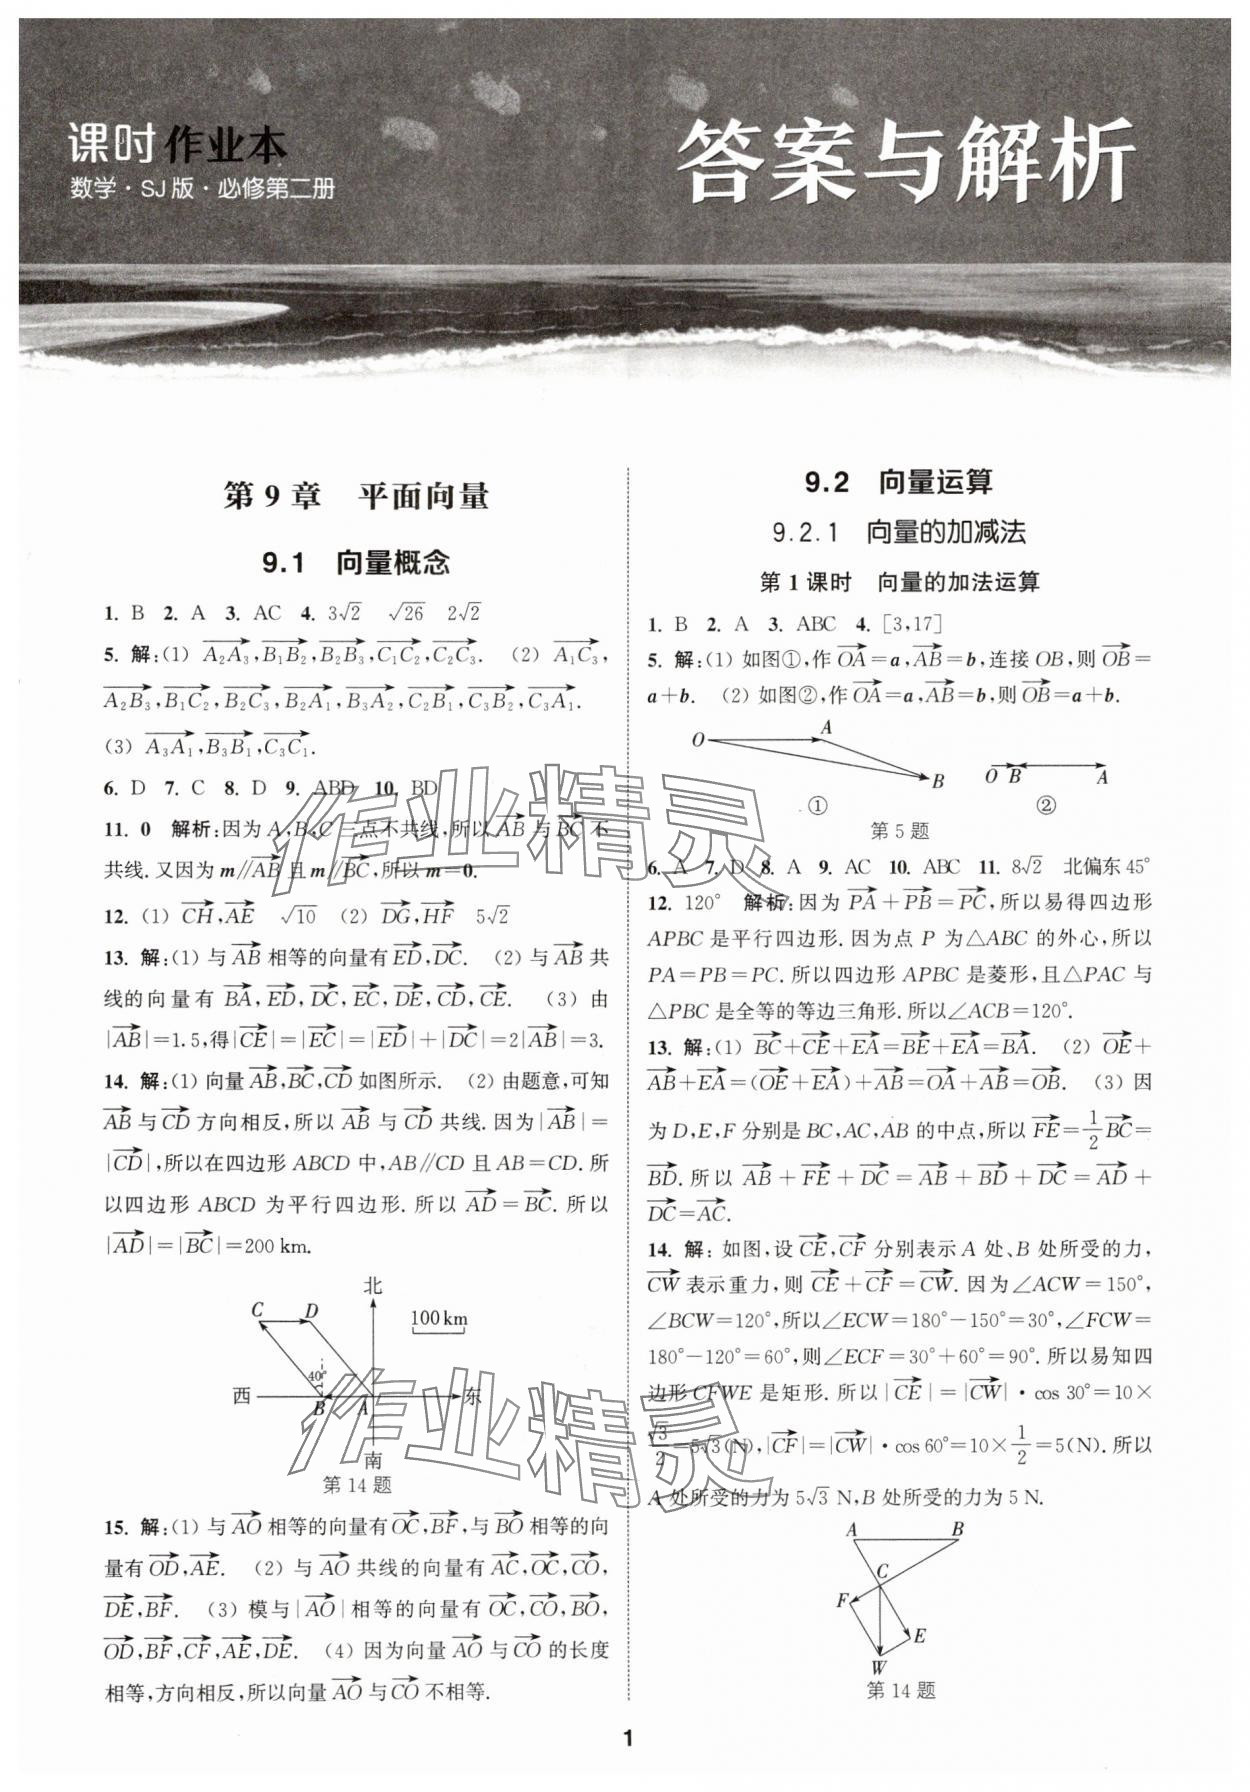 课时作业本
数学·SJ版·必修第二册
答案与解析
第9章 平面向量
9.1 向量概念
1. B 2. A 3. AC 4. 3√2 √26 2√2
5. 解:(1) $\overrightarrow{A_2A_3}$,$\overrightarrow{B_1B_2}$,$\overrightarrow{B_2B_3}$,$\overrightarrow{C_1C_2}$,$\overrightarrow{C_2C_3}$. (2) $\overrightarrow{A_1C_3}$,
$\overrightarrow{A_2B_3}$,$\overrightarrow{B_1C_2}$,$\overrightarrow{B_2C_3}$,$\overrightarrow{B_2A_1}$,$\overrightarrow{B_3A_2}$,$\overrightarrow{C_2B_1}$,$\overrightarrow{C_3B_2}$,$\overrightarrow{C_3A_1}$.
(3) $\overrightarrow{A_3A_1}$,$\overrightarrow{B_3B_1}$,$\overrightarrow{C_3C_1}$.
6. D 7. C 8. D 9. ABD 10. BD
11. 0 解析:因为A,B,C三点不共线,所以$\overrightarrow{AB}$与$\overrightarrow{BC}$不
共线.又因为m∥$\overrightarrow{AB}$且m∥$\overrightarrow{BC}$,所以m=0.
12. (1) $\overrightarrow{CH}$,$\overrightarrow{AE}$ √10 (2) $\overrightarrow{DG}$,$\overrightarrow{HF}$ 5√2
13. 解:(1) 与$\overrightarrow{AB}$相等的向量有$\overrightarrow{ED}$,$\overrightarrow{DC}$. (2) 与$\overrightarrow{AB}$共
线的向量有$\overrightarrow{BA}$,$\overrightarrow{ED}$,$\overrightarrow{DC}$,$\overrightarrow{EC}$,$\overrightarrow{DE}$,$\overrightarrow{CD}$,$\overrightarrow{CE}$. (3) 由
|$\overrightarrow{AB}$|=1.5,得|$\overrightarrow{CE}$|=|$\overrightarrow{EC}$|=|$\overrightarrow{ED}$|+|$\overrightarrow{DC}$|=2|$\overrightarrow{AB}$|=3.
14. 解:(1) 向量$\overrightarrow{AB}$,$\overrightarrow{BC}$,$\overrightarrow{CD}$如图所示. (2) 由题意,可知
$\overrightarrow{AB}$与$\overrightarrow{CD}$方向相反,所以$\overrightarrow{AB}$与$\overrightarrow{CD}$共线.因为|$\overrightarrow{AB}$|=
|$\overrightarrow{CD}$|,所以在四边形ABCD中,AB∥CD且AB=CD.所
以四边形ABCD为平行四边形.所以$\overrightarrow{AD}$=$\overrightarrow{BC}$.所以
|$\overrightarrow{AD}$|=|$\overrightarrow{BC}$|=200 km.
北
C D 100 km
40°
西 B A 东
南
第14题
15. 解:(1) 与$\overrightarrow{AO}$相等的向量有$\overrightarrow{OC}$,$\overrightarrow{BF}$,与$\overrightarrow{BO}$相等的向
量有$\overrightarrow{OD}$,$\overrightarrow{AE}$. (2) 与$\overrightarrow{AO}$共线的向量有$\overrightarrow{AC}$,$\overrightarrow{OC}$,$\overrightarrow{CO}$,
$\overrightarrow{DE}$,$\overrightarrow{BF}$. (3) 模与|$\overrightarrow{AO}$|相等的向量有$\overrightarrow{OC}$,$\overrightarrow{CO}$,$\overrightarrow{BO}$,
$\overrightarrow{OD}$,$\overrightarrow{BF}$,$\overrightarrow{CF}$,$\overrightarrow{AE}$,$\overrightarrow{DE}$. (4) 因为向量$\overrightarrow{AO}$与$\overrightarrow{CO}$的长度
相等,方向相反,所以向量$\overrightarrow{AO}$与$\overrightarrow{CO}$不相等.
9.2 向量运算
9.2.1 向量的加减法
第1课时 向量的加法运算
1. B 2. A 3. ABC 4. [3,17]
5. 解:(1) 如图①,作$\overrightarrow{OA}$=a,$\overrightarrow{AB}$=b,连接OB,则$\overrightarrow{OB}$=
a+b. (2) 如图②,作$\overrightarrow{OA}$=a,$\overrightarrow{AB}$=b,则$\overrightarrow{OB}$=a+b.
O A B O B A
① ②
第5题
6. A 7. D 8. A 9. AC 10. ABC 11. 8√2 北偏东45°
12. 120° 解析:因为$\overrightarrow{PA}$+$\overrightarrow{PB}$=$\overrightarrow{PC}$,所以易得四边形
APBC是平行四边形.因为点P为△ABC的外心,所以
PA=PB=PC.所以四边形APBC是菱形,且△PAC与
△PBC是全等的等边三角形.所以∠ACB=120°.
13. 解:(1) $\overrightarrow{BC}$+$\overrightarrow{CE}$+$\overrightarrow{EA}$=$\overrightarrow{BE}$+$\overrightarrow{EA}$=$\overrightarrow{BA}$. (2) $\overrightarrow{OE}$+
$\overrightarrow{AB}$+$\overrightarrow{EA}$=($\overrightarrow{OE}$+$\overrightarrow{EA}$)+$\overrightarrow{AB}$=$\overrightarrow{OA}$+$\overrightarrow{AB}$=$\overrightarrow{OB}$. (3) 因
为D,E,F分别是BC,AC,AB的中点,所以$\overrightarrow{FE}$=$\frac{1}{2}\overrightarrow{BC}$=
$\overrightarrow{BD}$.所以$\overrightarrow{AB}$+$\overrightarrow{FE}$+$\overrightarrow{DC}$=$\overrightarrow{AB}$+$\overrightarrow{BD}$+$\overrightarrow{DC}$=$\overrightarrow{AD}$+
$\overrightarrow{DC}$=$\overrightarrow{AC}$.
14. 解: 如图,设$\overrightarrow{CE}$,$\overrightarrow{CF}$分别表示A处、B处所受的力,
$\overrightarrow{CW}$表示重力,则$\overrightarrow{CE}$+$\overrightarrow{CF}$=$\overrightarrow{CW}$.因为∠ACW=150°,
∠BCW=120°,所以∠ECW=180°-150°=30°,∠FCW=
180°-120°=60°,则∠ECF=30°+60°=90°.所以易知四
边形CFWE是矩形.所以|$\overrightarrow{CE}$|=|$\overrightarrow{CW}$|·cos 30°=10×
$\frac{\sqrt{3}}{2}$=5√3(N),|$\overrightarrow{CF}$|=|$\overrightarrow{CW}$|·cos 60°=10×$\frac{1}{2}$=5(N).所以
A处所受的力为5√3 N,B处所受的力为5 N.
A B
C
F
E
W
第14题
1
作业精灵
作业精灵